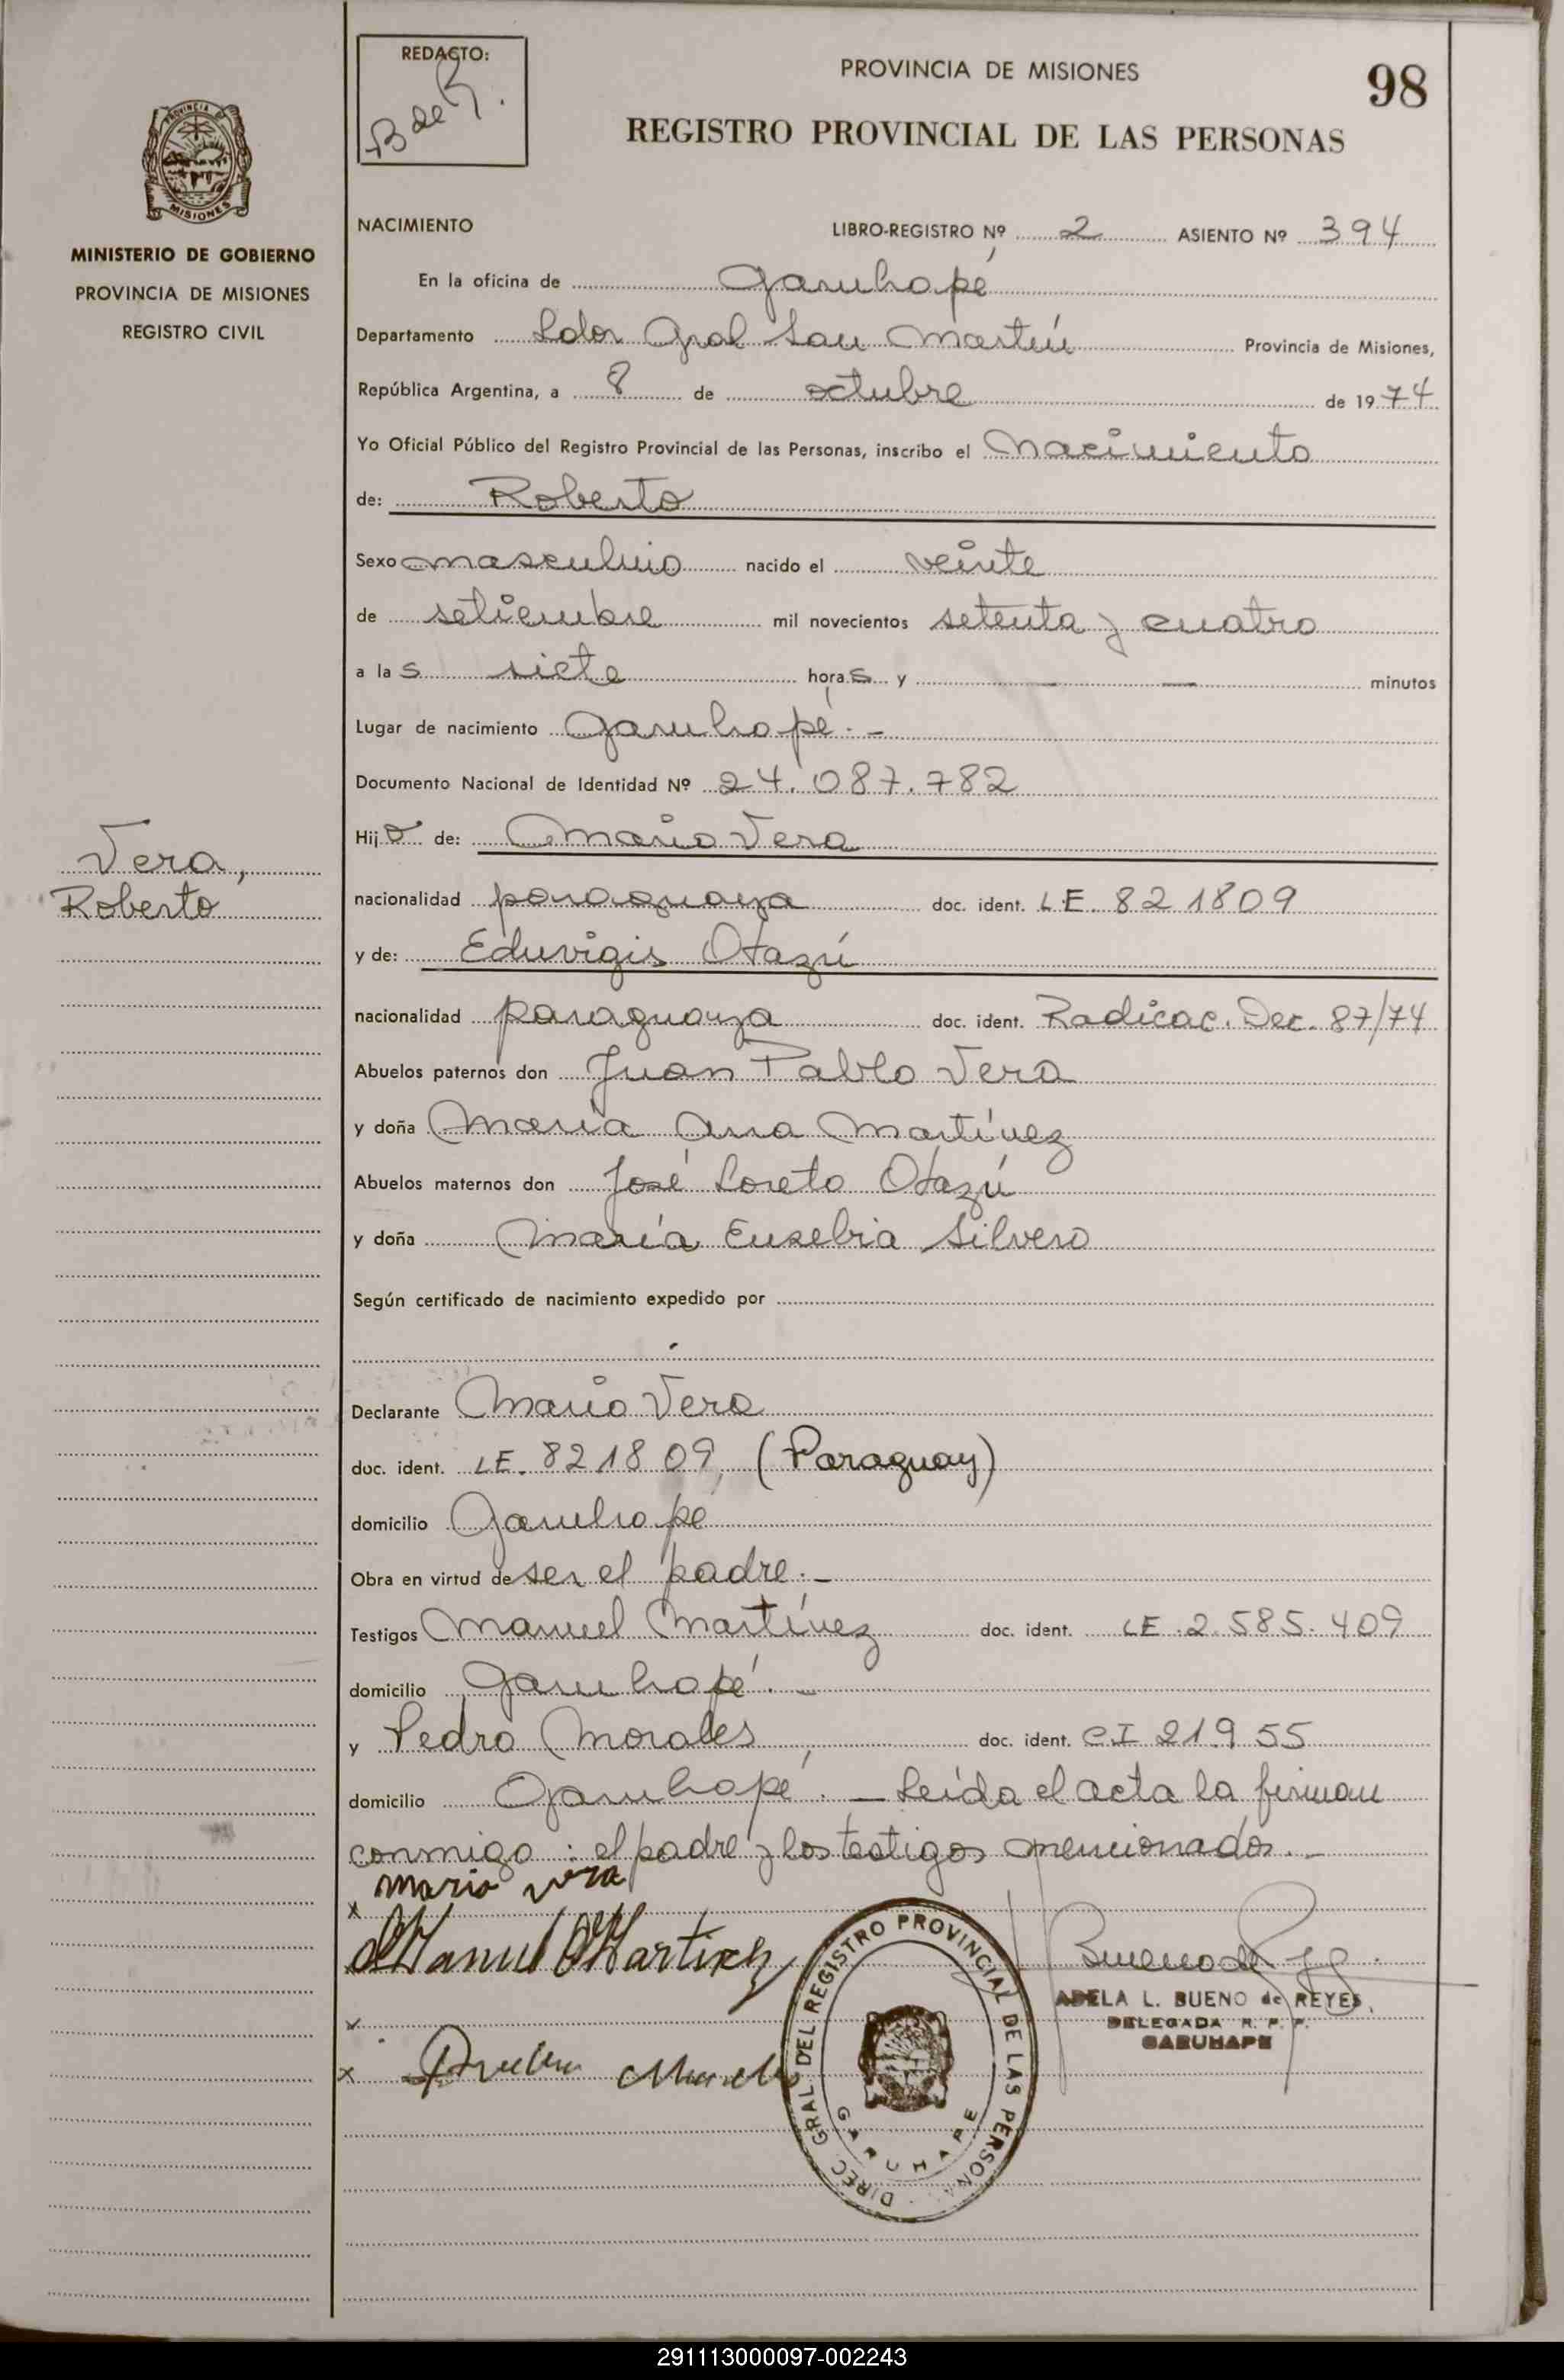 REDACTO:
B de R.
PROVINCIA DE MISIONES
98
REGISTRO PROVINCIAL DE LAS PERSONAS
PROVINCIA DE
MISIONES
MINISTERIO DE GOBIERNO
PROVINCIA DE MISIONES
REGISTRO CIVIL
NACIMIENTO LIBRO-REGISTRO Nº 2 ASIENTO Nº 394
En la oficina de Garuhapé
Departamento Ldor Gral San Martín Provincia de Misiones,
República Argentina, a 8 de octubre de 1974
Yo Oficial Público del Registro Provincial de las Personas, inscribo el Nacimiento
de: Roberto
Sexo masculino nacido el veinte
de setiembre mil novecientos setenta y cuatro
a las siete horas y — — minutos
Lugar de nacimiento Garuhapé.-
Documento Nacional de Identidad Nº 24.087.782
Hijo de: Mario Vera
Vera,
Roberto
nacionalidad paraguaya doc. ident. L.E. 821809
y de: Eduvigis Otazú
nacionalidad paraguaya doc. ident. Radicac. Dec. 87/74
Abuelos paternos don Juan Pablo Vera
y doña María Ana Martínez
Abuelos maternos don José Loreto Otazú
y doña María Eusebia Silvero
Según certificado de nacimiento expedido por
Declarante Mario Vera
doc. ident. LE. 821809, (Paraguay)
domicilio Garuhapé
Obra en virtud de ser el padre.-
Testigos Manuel Martínez doc. ident. LE.2.585.409
domicilio Garuhapé.-
y Pedro Morales, doc. ident. CI 21955
domicilio Garuhapé.- Leída el acta la firman
conmigo: el padre y los testigos mencionados.-
x mario vera
Manuel Martinez
Bueno de Rey
ADELA L. BUENO de REYES
DELEGADA R. P. P.
GARUHAPE
x
x
DIREC. GRAL. DEL REGISTRO PROVINCIAL DE LAS PERSONAS
GARUHAPE
291113000097-002243